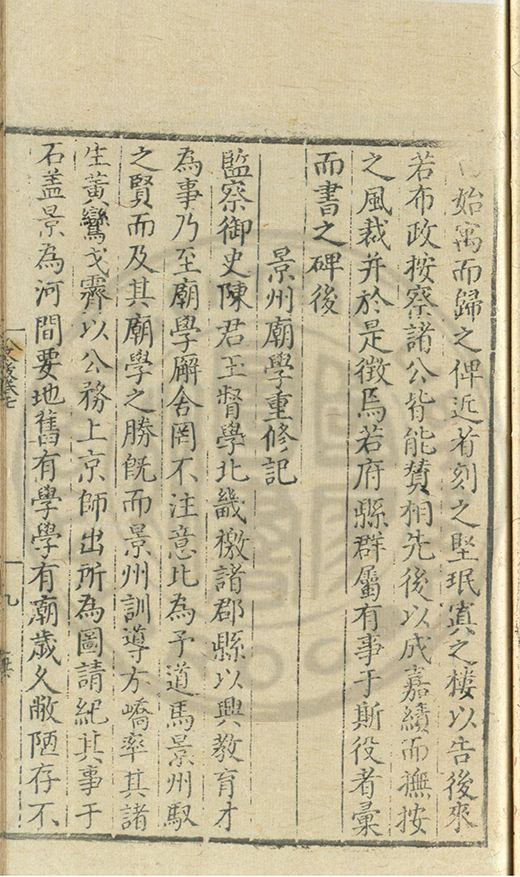 始寓而歸之俾近者刻之堅珉寘之樓以告後來
若布政按察諸公皆能賛相先後以成嘉績而撫按
之風裁并於是徵焉若府縣群屬有事于斯役者彙
而書之碑後
景州廟學重修記
監察御史陳君玉督學北畿檄諸郡縣以興教育才
為事乃至廟學廨舍罔不注意比為予道馬景州馭
之賢而及其廟學之勝旣而景州訓導方嶠率其諸
生黃鸞戈霽以公務上京師出所為圖請紀其事于
石盖景為河間要地舊有學學有廟歲久敝陋存不
卷七
九